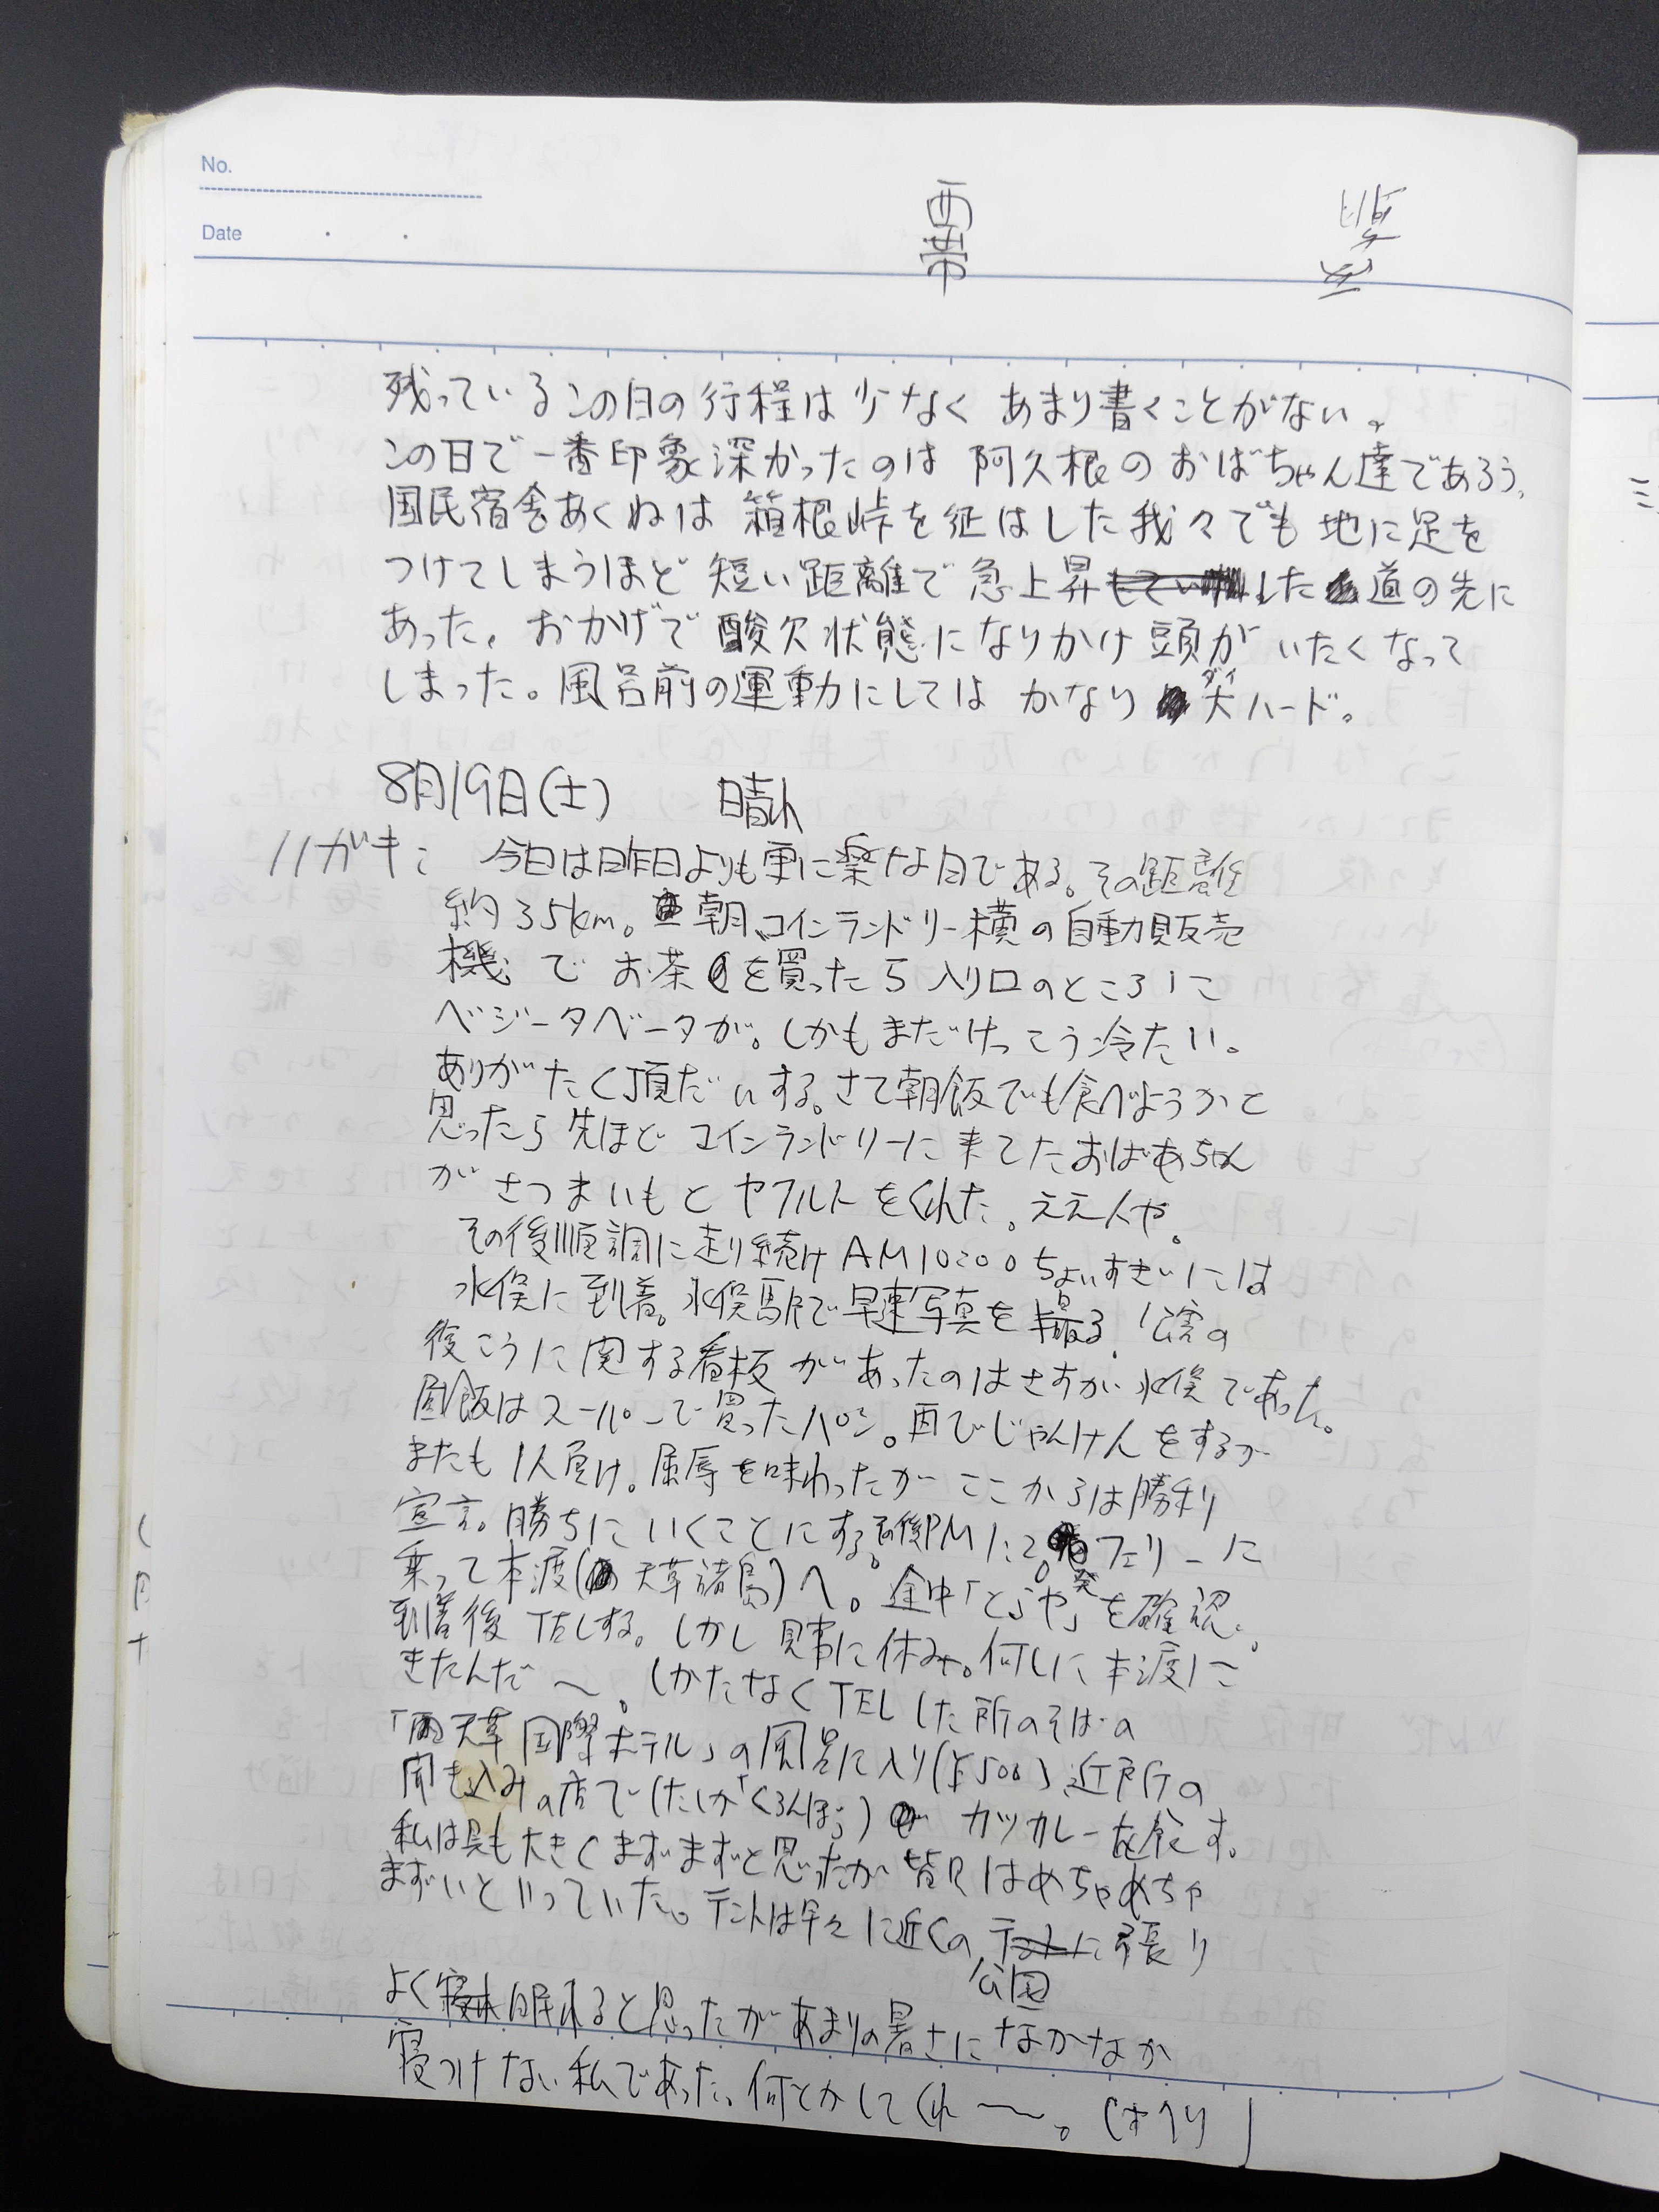 No.
Date
残っているこの日の行程は少なく あまり書くことがない。
この日で一番印象深かったのは 阿久根のおばちゃん達であろう。
国民宿舎あくねは 箱根峠を征はした我々でも 地に足を
つけてしまうほど 短い距離で 急上昇した 道の先に
あった。おかげで 酸欠状態になりかけ 頭が いたくなって
しまった。風呂前の運動にしては かなり 大ハード。
ダイ
8月19日(土) 晴れ
ハガキ: 今日は昨日よりも更に楽な日である。その距離
約35km。朝、コインランドリー横の自動販売
機で お茶を買ったら 入り口のところに
ベジータベータが。しかもまだけっこう冷たい。
ありがたく頂だいする。さて朝飯でも食べようかと
思ったら 先ほど コインランドリーに来てたおばあちゃん
が さつまいもと ヤクルトをくれた。ええ人や。
その後順調に走り続け AM10:00ちょいすぎには
水俣に到着。水俣駅で早速写真を撮る。公害の
後こうに関する看板があったのはさすが水俣であった。
昼飯はスーパーで買ったパン。再びじゃんけんをするが
またも1人負け。屈辱を味わったが ここからは勝利
宣言。勝ちにいくことにする。その後PM1:20発フェリーに
乗って本渡(天草諸島)へ。途中「とじや」を確認。
到着後 TELする。しかし 見事に休み。何しに本渡に
きたんだ〜。しかたなくTELした所のそばの
「天草国際ホテル」の風呂に入り(¥500)近所の
聞き込みの店で(たしか「くろんぼ」) カツカレーを食す。
私は具も大きくまずまずと思ったが 皆はめちゃめちゃ
まずいといっていた。テントは早々に近くの 公園に張り
よく眠れると思ったがあまりの暑さになかなか
寝つけない私であった。何とかしてくれ〜。